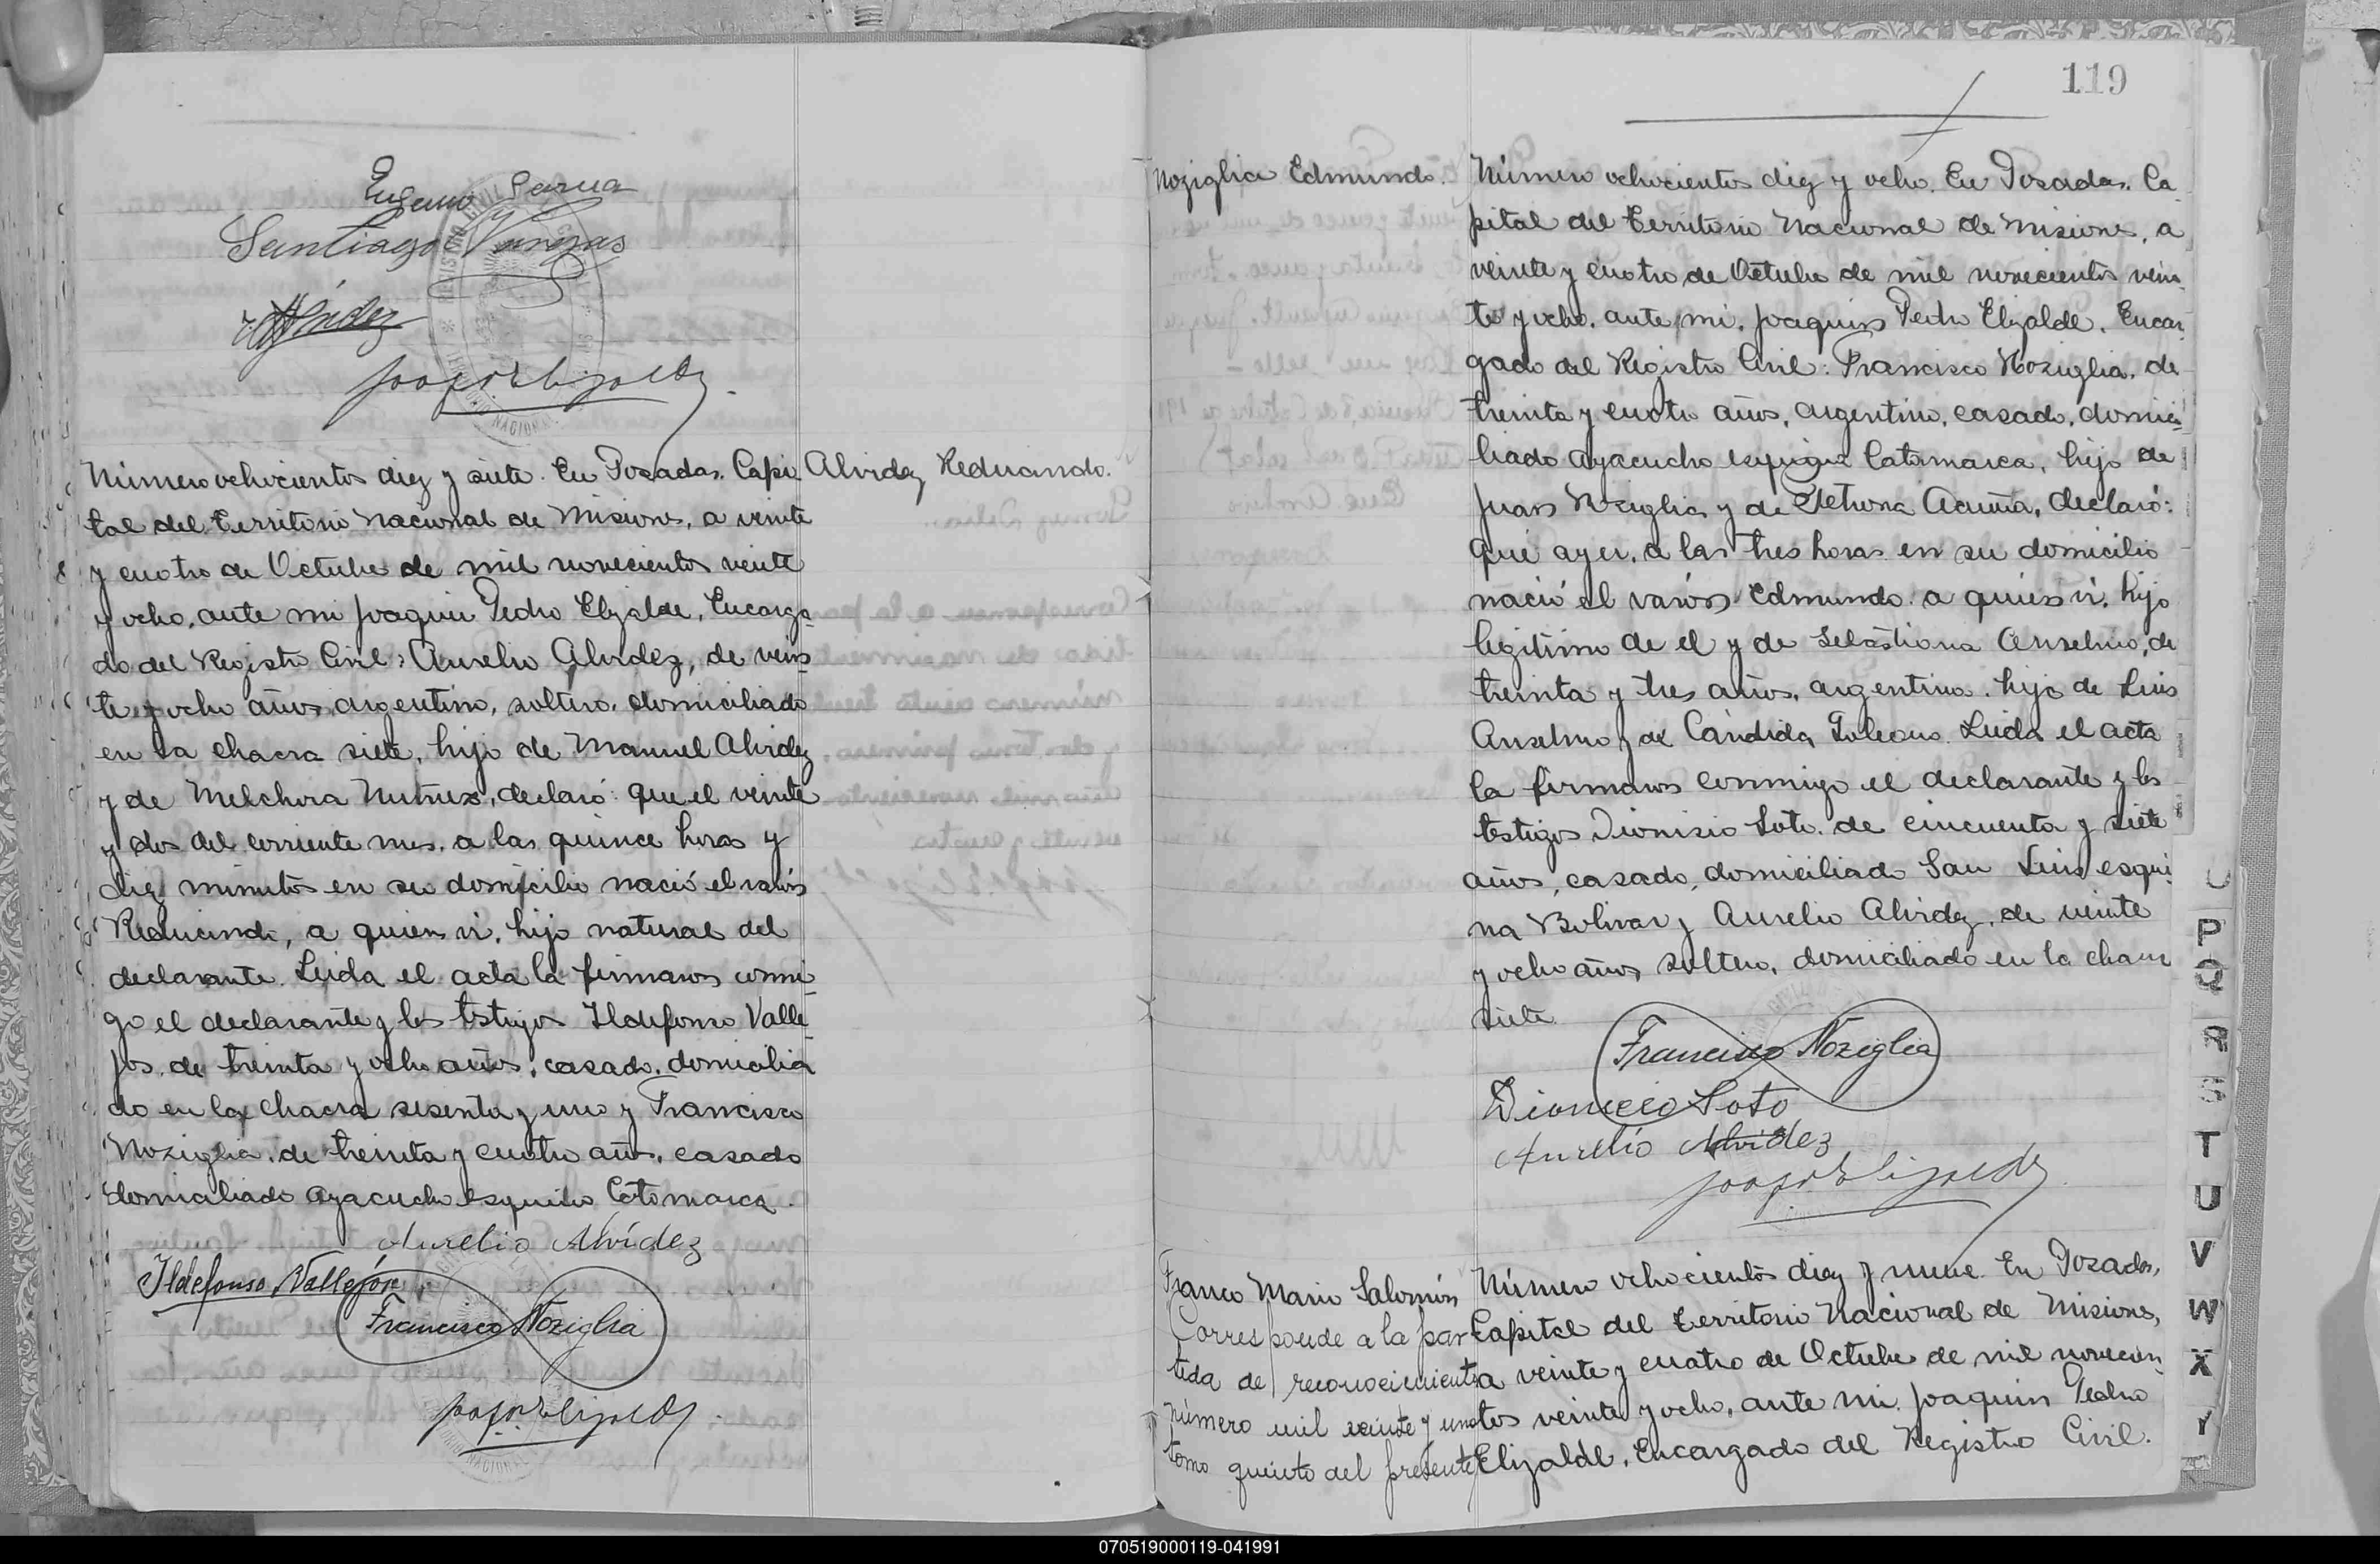 Eugenio
Santiago Vargas
Número ochocientos diez y siete. En Posadas, Capi
tal del Territorio Nacional de Misiones, a veinte
y cuatro de Octubre de mil novecientos veinte
y ocho, ante mi Joaquin Pedro Elizalde, Encarga-
do del Registro Civil: Aurelio Alvidez, de vein-
te y ocho años, argentino, soltero, domiciliado
en la chacra siete, hijo de Manuel Alvidez
y de Melchora Nuñez, declaró: que el veinte
y dos del corriente mes, a las quince horas y
diez minutos en su domicilio nació el varón
Reducindo, a quien vi, hijo natural del
declarante. Leida el acta la firmaron conmi-
go el declarante y los testigos Ildefonso Valle-
jos, de treinta y ocho años, casado, domicilia
do en la chacra sesenta y uno y Francisco
Noziglia, de treinta y cuatro años, casado
domiciliado Ayacucho esquina Catamarca.
Aurelio Alvídez
Ildefonso Vallejos
Francisco Noziglia
Alvidez Reducindo.
119
Noziglia Edmundo.
Número ochocientos diez y ocho. En Posadas, Ca
pital del Territorio Nacional de Misiones, a
veinte y cuatro de Octubre de mil novecientos vein-
te y ocho, ante mi, Joaquin Pedro Elizalde, Encar-
gado del Registro Civil: Francisco Noziglia, de
treinta y cuatro años, argentino, casado, domici-
liado Ayacucho esquina Catamarca, hijo de
Juan Noziglia y de Acuña, declaró:
que ayer, a las tres horas en su domicilio
nació el varón Edmundo a quien vi, hijo
legitimo de el y de Sebastiana Anselmo, de
treinta y tres años, argentina, hija de Luis
Anselmo y de Cándida Toledo. Leida el acta
la firmaron conmigo el declarante y los
testigos Dionisio Soto, de cincuenta y siete
años, casado, domiciliado San Luis esqui-
na Bolivar y Aurelio Alvidez, de veinte
y ocho años, soltero, domiciliado en la chacra
siete.
Francisco Noziglia
Dionicio Soto
Aurelio Alvidez
Franco Mario Salomón
Corresponde a la par
tida de reconocimiento
número mil veinte y uno
tomo quinto del presente
Número ochocientos diez y nueve. En Posadas,
Capital del Territorio Nacional de Misiones,
a veinte y cuatro de Octubre de mil novecien-
tos veinte y ocho, ante mi, Joaquin Pedro
Elizalde, Encargado del Registro Civil.
P
Q
R
S
T
U
V
W
X
Y
070519000119-041991